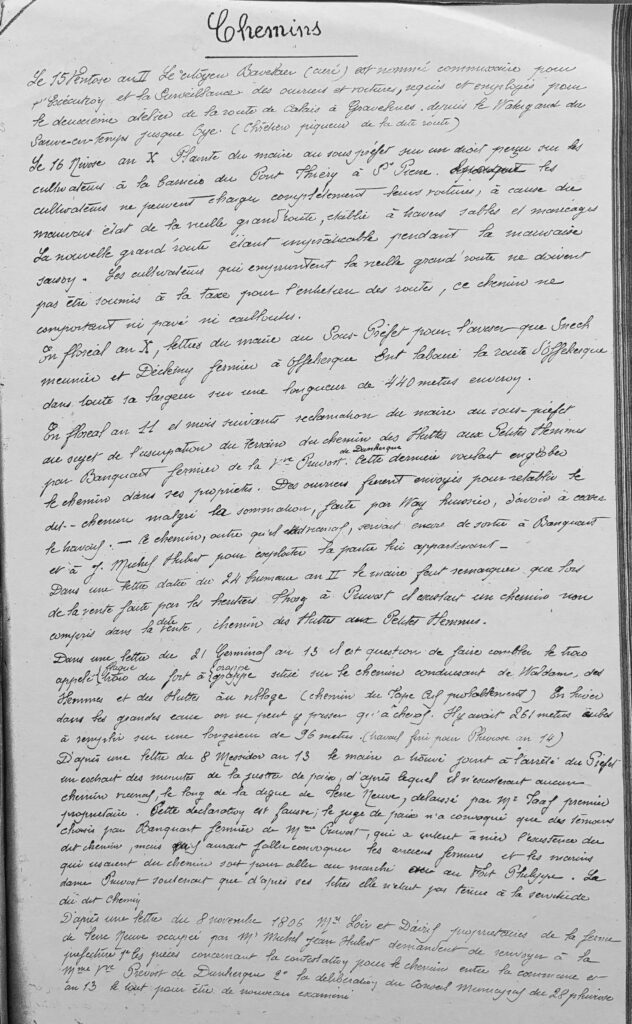 Chemins
Le 15 Ventose an II Le citoyen Bavelaer (curé) est nommé commissaire pour
l'exécution et la Surveillance des ouvriers et voitures, requis et employés pour
le deuxième atelier de la route de Calais à Gravelines, depuis le Watergand du
jusque Oye. (Chrétien piqueur de la dite route)
Le 16 Nivose an X Plainte du maire au sous préfet sur un droit perçu sur les
cultivateurs à la barrière du Pont Thiery à St Pierre. les
cultivateurs ne peuvent charger complètement leurs voitures, à cause du
mauvais état de la vieille grand'route, établie à travers sables et marécages
La nouvelle grand'route étant impraticable pendant la mauvaise
saison. Les cultivateurs qui empruntent la vieille grand'route ne doivent
pas être soumis à la taxe pour l'entretien des routes, ce chemin ne
comportant ni pavé ni cailloutis.
En floréal an X, lettres du maire au Sous-Préfet pour l'aviser que
meunier et fermier à Offekerque ont labouré la route d'Offekerque
dans toute sa largeur sur une longueur de 440 mètres environ.
En floréal an 11 et mois suivants reclamation du maire au sous-préfet
au sujet de l'usurpation du terrain du chemin des Huttes aux Petites Hemmes
par Banquart fermier de la Vve Pruvost de Dunkerque. Cette dernière voulait englober
le chemin dans ses propriétés. Des ouvriers furent envoyés pour rétablir le
dit chemin malgré la sommation, faite par Way huissier, d'avoir à cesser
le travail. - Ce chemin, outre qu'il était vicinal, servait encore de sortie à Banquart
et à J. Michel Hubert pour exploiter la partie lui appartenant -
Dans une lettre datée du 24 brumaire an II le maire fait remarquer que lors
de la vente faite par les héritiers à Pruvost il existait un chemin non
compris dans la dite vente, chemin des Huttes aux Petites Hemmes.
Dans une lettre du 21 Germinal an 13 il est question de faire combler le trou
appelé du fort à grappe situé sur le chemin conduisant de Waldam, des
Hemmes et des Huttes au village (chemin du Pape probablement) En hiver
dans les grandes eaux on ne peut y passer qu'à cheval. Il y avait 261 mètres cubes
à remplir sur une longueur de 96 mètres. (travail fini pour Pluviose an 14)
D'après une lettre du 8 Messidor an 13 le maire a trouvé joint à l'arrêté du Préfet
un extrait des minutes de la justice de paix, d'après lequel il n'existerait aucun
chemin vicinal, le long de la digue de Terre Neuve, délaissé par Mr Taaf premier
propriétaire. Cette déclaration est fausse; le juge de paix n'a convoqué que des témoins
choisis par Banquart fermier de Mme Pruvost, qui a intérêt à nier l'existence du
dit chemin, mais qu'il aurait fallu convoquer les anciens fermiers et les marins
qui usaient du chemin soit pour aller au marché au Fort Philippe. La
dame Pruvost soutenant que d'après ses titres elle n'était pas tenue à la servitude
du dit chemin
D'après une lettre du 8 novembre 1806 Mrs Loir et propriétaires de la ferme
de Terre Neuve occupée par Mr Michel Jean Hubert demandent de renvoyer à la
préfecture 1° les pièces concernant la contestation pour le chemin entre la commune et
Mme Vve Pruvost de Dunkerque 2° la délibération du Conseil Municipal du 28 pluviose
an 13 le tout pour être de nouveau examiné